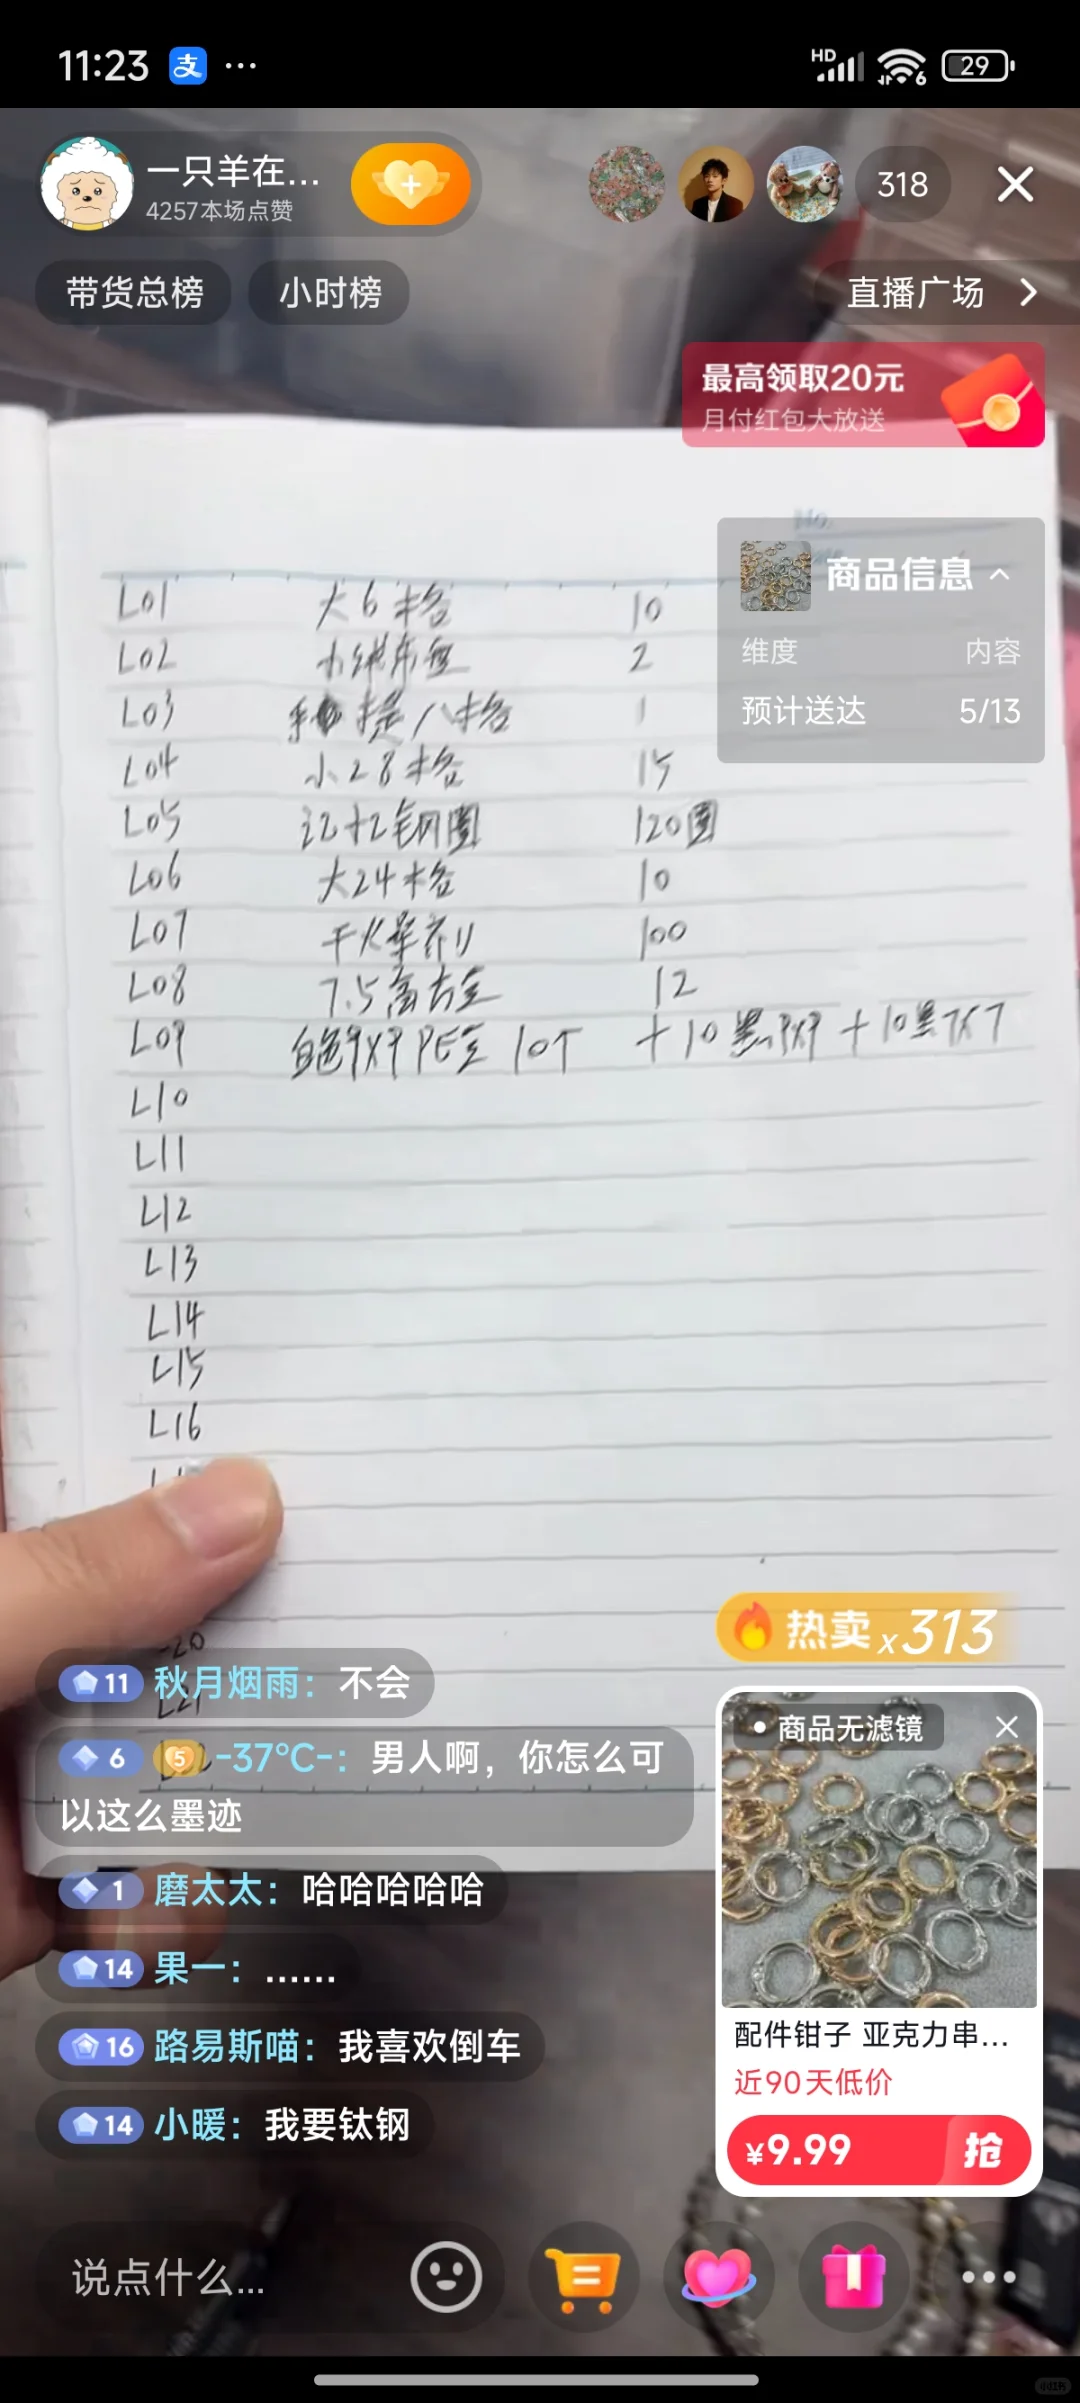 11:23 支 ...
HD 6 29
一只羊在...
4257本场点赞
318
带货总榜 小时榜 直播广场
最高领取20元
月付红包大放送
No.
商品信息
维度 内容
预计送达 5/13
L01 大6格 10
L02 小纸东 2
L03 手提八格 1
L04 小28格 15
L05 记忆钢圈 120圈
L06 大24格 10
L07 干火柴 100
L08 7.5 12
L09 白色9X9PE 10个 +10黑9X9+10黑7X7
L10
L11
L12
L13
L14
L15
L16
20
L21
热卖x313
11 秋月烟雨：不会
6 5 -37°C-：男人啊，你怎么可
以这么墨迹
1 磨太太：哈哈哈哈哈
14 果一：......
16 路易斯喵：我喜欢倒车
14 小暖：我要钛钢
商品无滤镜
配件钳子 亚克力串...
近90天低价
¥9.99 抢
说点什么...
小红书